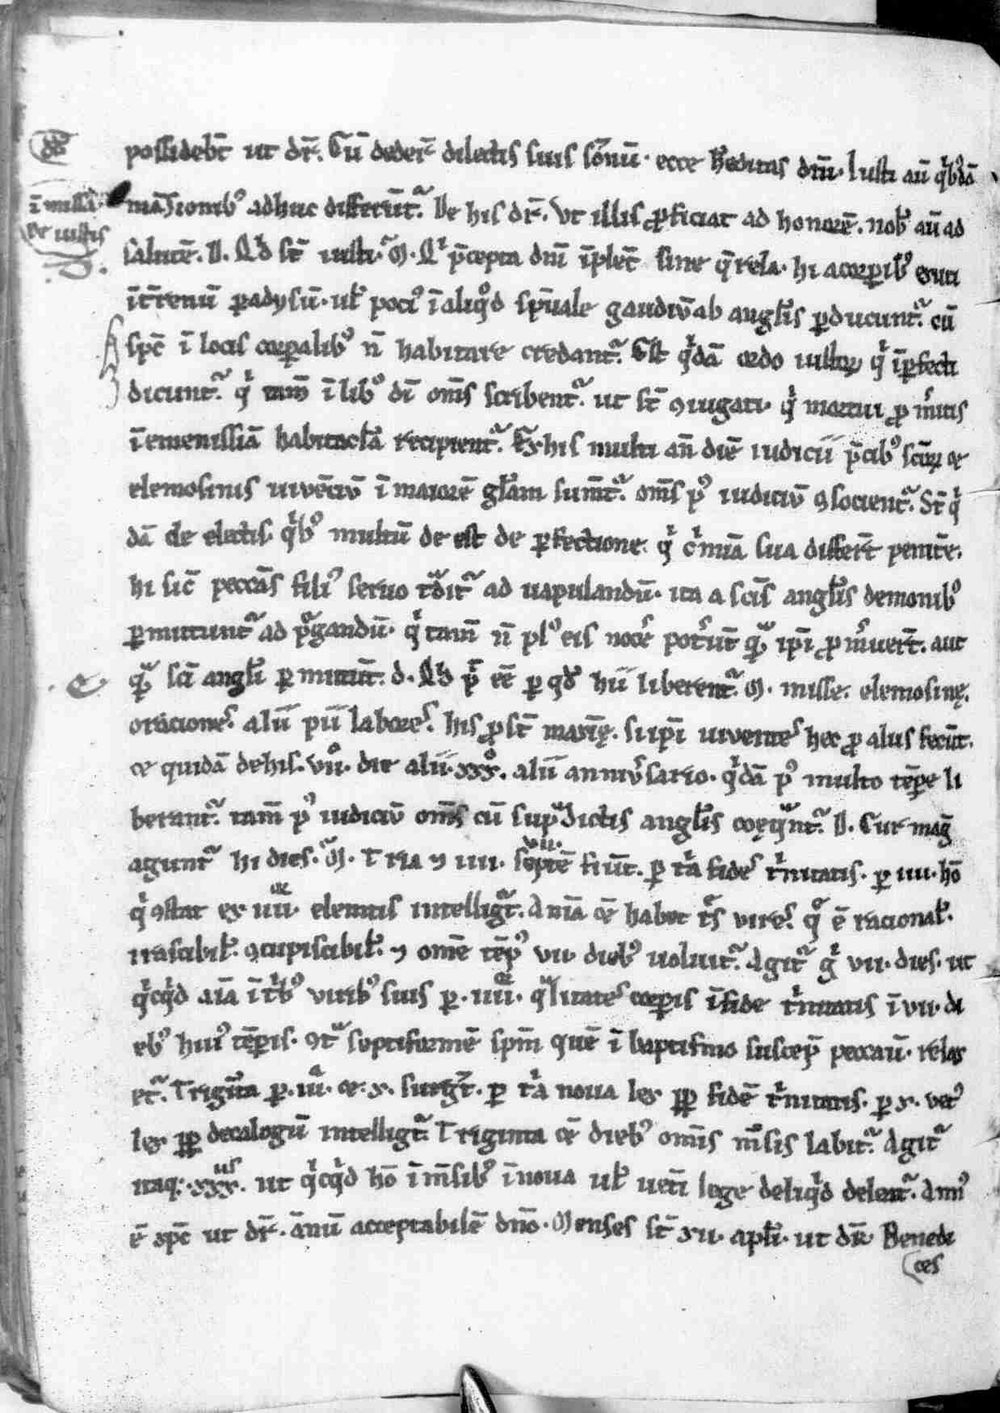 possidebt̄ ut dr̄. Cū deder̄ dilectis suis sōnū · ecce hereditas dn̄i · Iusti aū q'bdā
māsionib᷒ adhuc differūt᷑. De his dr̄. Vt illis ꝓficiat ad honorē. nob᷒ aū ad
in missa
de iustis
salutē. D. Qd̄ st̄ iusti · M. Qi p̄cepta dn̄i īplēt sine q̄rela · hi a corꝑib᷒ exuti
ī t̄renū ꝑadysū · ul' poci᷒ ī aliq'd sp̄uale gaudiū ab angl'is ꝑducunt᷑. cū
sp̄c ī locis corꝑalib᷒ n̄ habitare credant᷑. Est q'dā ordo iustoꝝ q' īꝑfecti
dicunt᷑. q' tam̄ ī lib᷒ dī om̄s scribent᷑. ut st̄ ꝯiugati · q' mortui ꝓ m'itis
ī emenissiā habitacl'a recipient᷑. Ex his multi an̄ diē iudicii p̄cib᷒ scōꝝ ⁊
elemosinis uiuēciū ī maiorē gl'am sumt᷑. om̄s p᷒ iudiciū ꝯsocient᷑. St̄ q'
dā de electis · q'b᷒ multū de est de ꝑfectione. q' c'mīa sua differēt penitē.
hi sic̄ peccās fili᷒ seruo t̄dit᷑ ad uapulandū · ita a scīs angl'is demonib᷒
ꝑmitunt᷑ ad p᷑gandū · q' tam̄ n̄ pl᷒ eis nocē pot'ūt q᷑ ip̄i ꝓm'uert̄. aut
q᷑ scī angl'i ꝑmittūt. D. Qd̄ p̄ ēē ꝑ qd̄ hii liberent᷑. M. misse. elemosinę.
oraciones. alii pii labores. his ꝓ st̄ maxīę. si ip̄i uiuentes hec ꝓ aliis fecūt.
⁊ quidā de his · vii᷒ die alii · xxx᷒. alii anniu'sario · q'dā p᷒ multo tēꝑe li
berant᷑. tam̄ p᷒ iudiciū om̄s cū sup᷑dictis angl'is coęq᷑nt᷑. D. Cur mag̅
agunt᷑ hi dies. M. Tria ⁊ iiii · septē vii. fiūt. ꝑ t'a fides t'nitatis. ꝑ iiii · hō
q' ꝯstat ex iiii · elem̄tis intelligit᷑. Anīa ē habet t's vires. q᷒ ē racional'.
irascibil'. ꝯcupiscibil'. ⁊ om̄e tēp᷒ vii · dieb᷒ uoluit᷑. Agit᷑ g' vii · dies · ut
q'cq'd aīa ī t'b᷒ virib᷒ suis ꝑ · iiii · q᷑litates corꝑis ī fide t'nitatis ī vii · di
eb᷒ hui᷒ tēꝑis · ꝯt᷑ septiformē sp̄m quē ī baptismo suscep̄ peccauī · relax
et᷑. Triginta ꝑ · iii · ⁊ · x · surgt̄. ꝑ t'a noua lex ꝓp̄ fidē t'nitatis. ꝑ x · vet᷒
lex ꝓp̄ decalogū intelligit᷑. Triginta ē dieb᷒ om̄is m̄sis labit᷑. Agit᷑
itaq; · xxx · ut q'cq'd hō ī m̄sib᷒ ī noua ul' uet'i lege deliq'd delent᷑. Ann᷒
ē xp̄c ut dr̄. ānū acceptabilē dn̄o · Menses st̄ xii · apl'i · ut dr̄. Benedi
ces